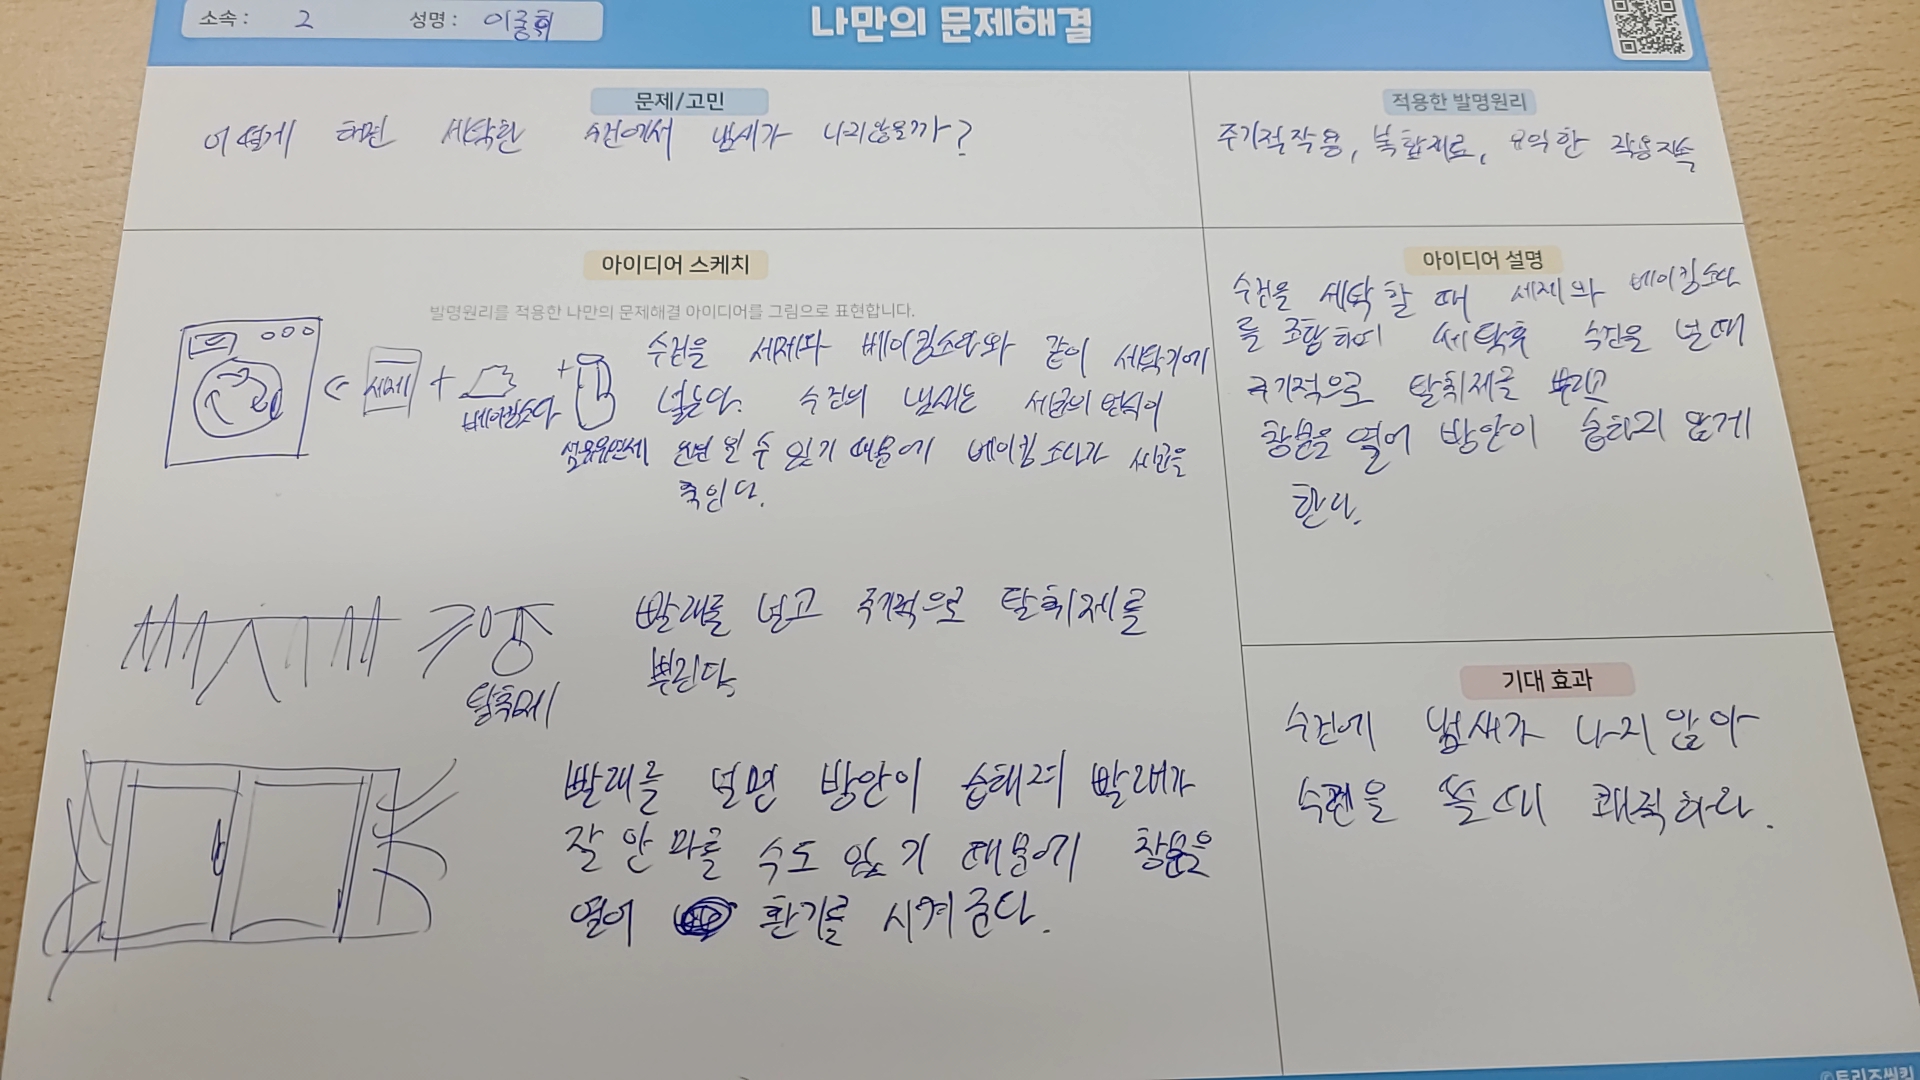 소속 : 2 성명 : 이중휘
나만의 문제해결
문제/고민
어떻게 하면 세탁한 수건에서 냄새가 나지않을까?
적용한 발명원리
주기적작용, 복합재료, 요익한 작용지속
아이디어 스케치
발명원리를 적용한 나만의 문제해결 아이디어를 그림으로 표현합니다.
세제
베이킹소다
섬유유연제
수건을 세제와 베이킹소다와 같이 세탁기에
넣는다. 수건의 냄새는 세균의 번식이
원인 일 수 있기 때문에 베이킹소다가 세균을
죽인다.
빨래를 널고 주기적으로 탈취제를
뿌린다.
탈취제
빨래를 널면 방안이 습해져 빨래가
잘 안 마를 수도 있기 때문에 창문을
열어 환기를 시켜준다.
아이디어 설명
수건을 세탁할 때 세제와 베이킹소다
를 조합하며 세탁후 수건을 널때
주기적으로 탈취제를 뿌리고
창문을 열어 방안이 습하지 않게
한다.
기대 효과
수건에 냄새가 나지않아
수건을 쓸때 쾌적하다.
©트리즈씽킹